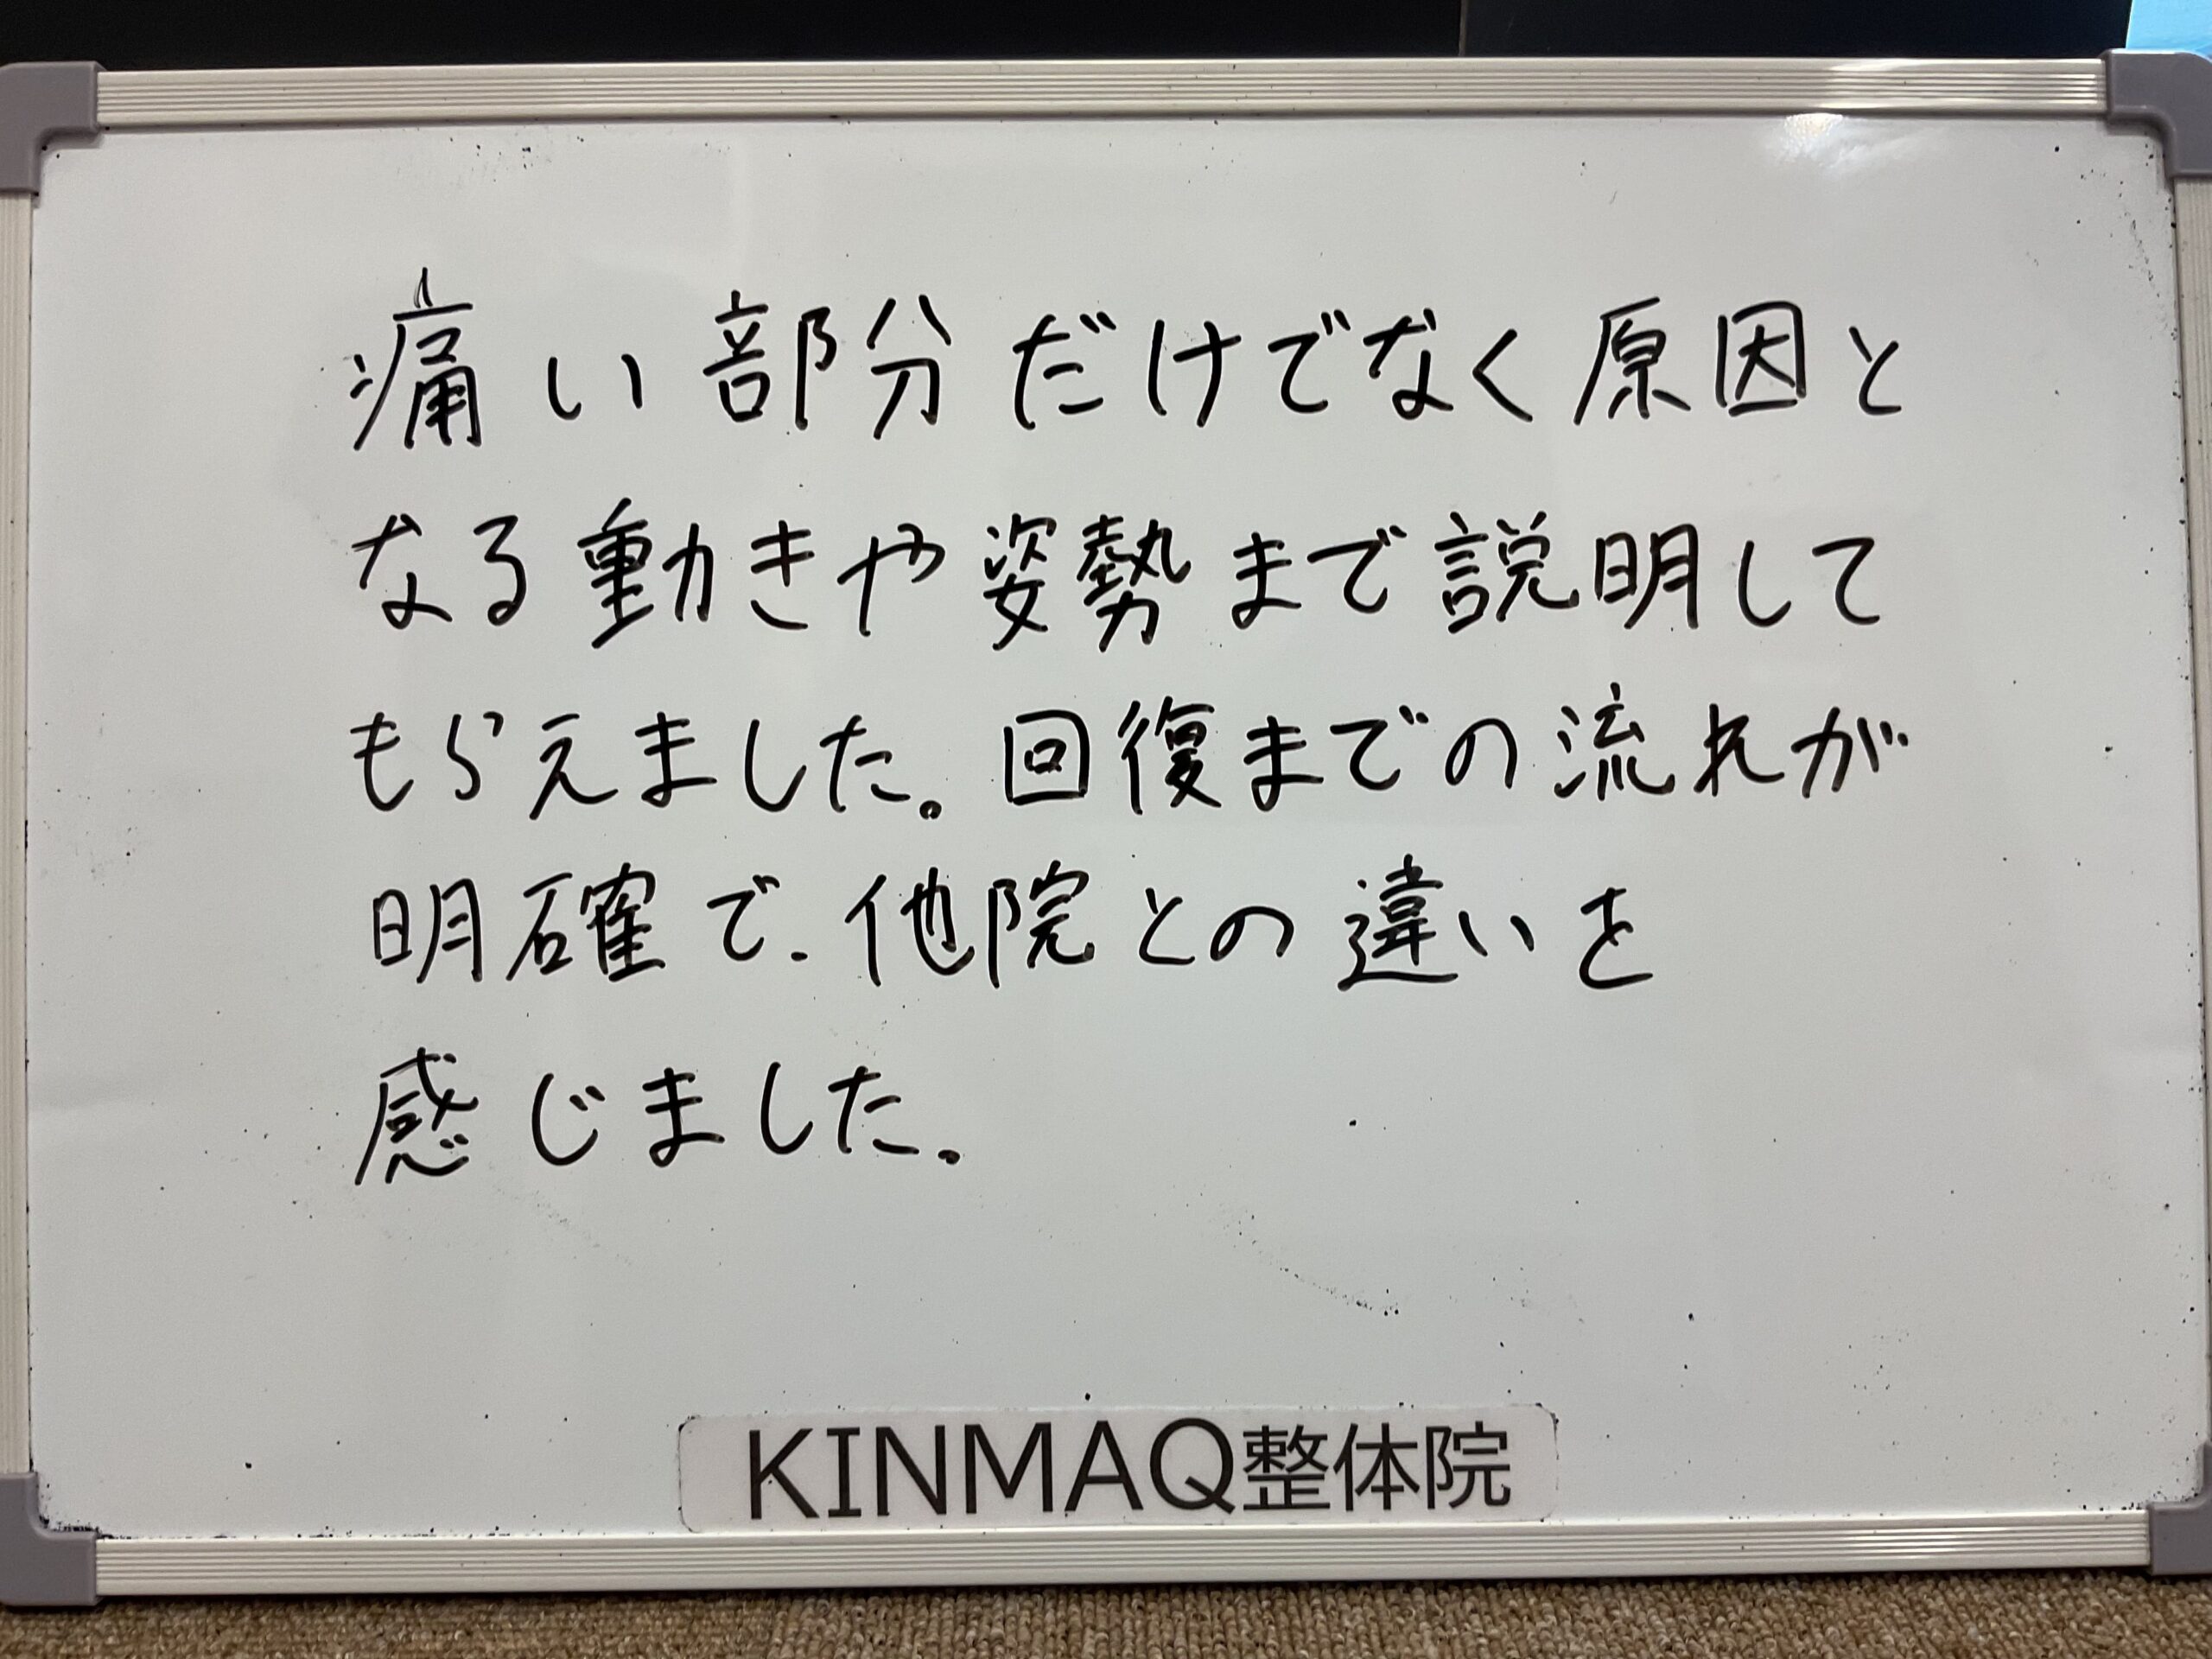 痛い部分だけでなく原因と
なる動きや姿勢まで説明して
もらえました。回復までの流れが
明確で、他院との違いを
感じました。
KINMAQ整体院